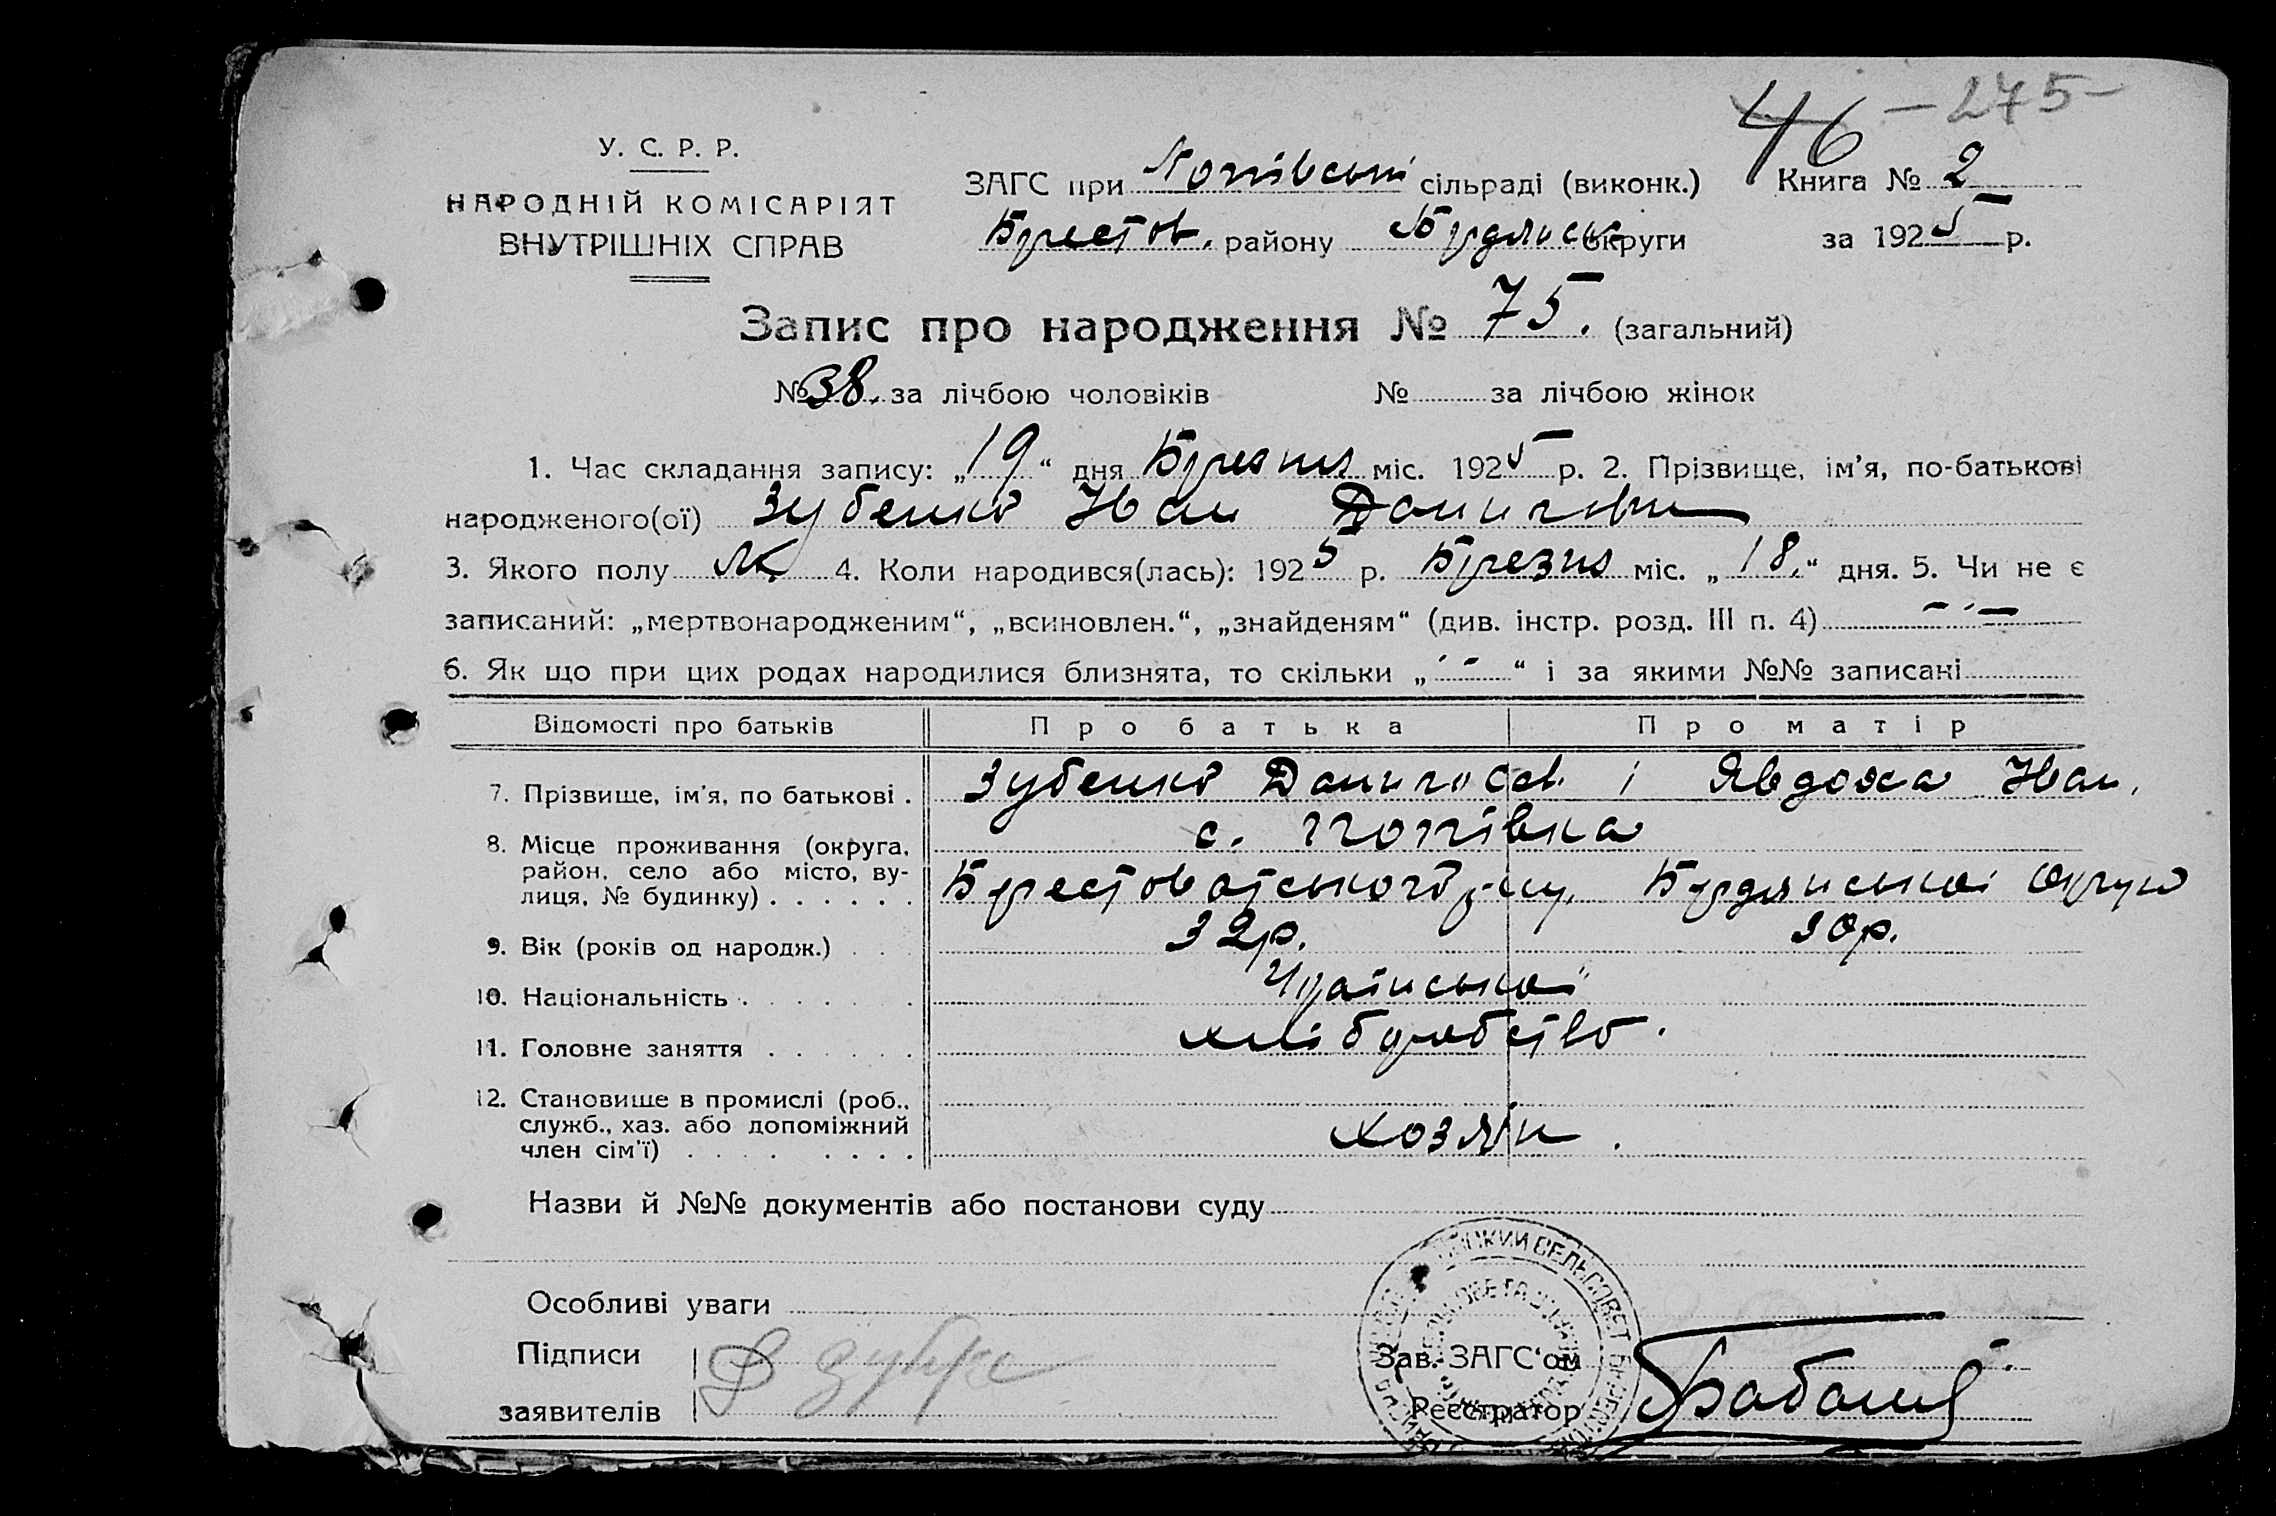 46 - 275 -
У. С. Р. Р.
НАРОДНІЙ КОМІСАРІЯТ
ВНУТРІШНІХ СПРАВ
ЗАГС при Попівські сільраді (виконк.) Книга № 2
Берестов. району Бердянськ округи за 1925 р.
Запис про народження № 75. (загальний)
№ 38. за лічбою чоловіків № за лічбою жінок
1. Час складання запису: „19“ дня Березня міс. 1925 р. 2. Прізвище, ім'я, по-батькові
народженого(ої) Зубенко Иван Данилович
3. Якого полу М. 4. Коли народився(лась): 1925 р. Березня міс. „18.“ дня. 5. Чи не є
записаний: „мертвонародженим“, „всиновлен.“, „знайденям“ (див. інстр. розд. III п. 4) - - -
6. Як що при цих родах народилися близнята, то скільки „ - - “ і за якими №№ записані
Відомості про батьків Про батька Про матір
7. Прізвище, ім'я, по батькові . Зубенко Данило і Явдоха Иван.
8. Місце проживання (округа, с. Попівка
район, село або місто, ву-
лиця, № будинку) . . . . . . Берестоватського р-ну, Бердянськоі округи
9. Вік (років од народж.) . . . 32 р. 30 р.
10. Національність . . . . . . .
11. Головне заняття . . . . . . хліборобство.
12. Становище в промислі (роб.,
служб., хаз. або допоміжний
член сім'ї) . . . . . . . . Хозяін.
Назви й №№ документів або постанови суду
Особливі уваги
Підписи
заявителів
Д Зубке
Зав. ЗАГС'ом
Реєстратор